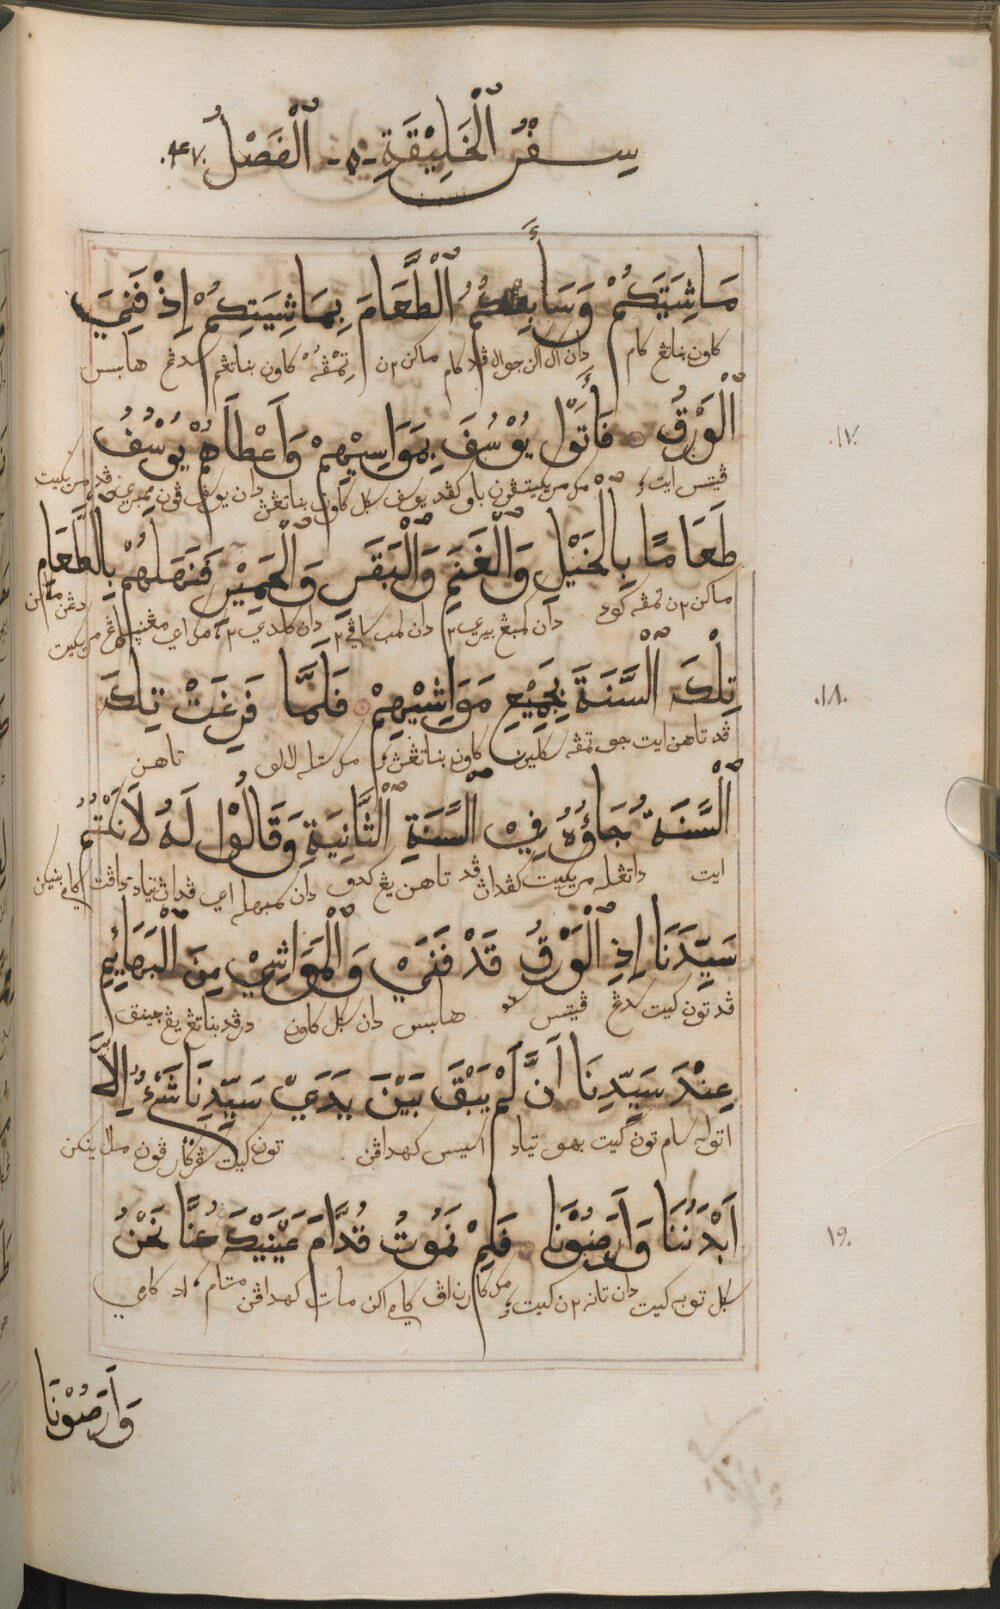 سِفْرُ ٱلْخَلِيْقَةِ -٥- ٱلْفَصْلُ .٤٧.
مَاشِيَتَكُمْ وَسَأَبِعُكُمُ ٱلْطَّعَامَ بِمَاشِيَتِكُمْ إِذْ فَنِيَ
كاون بناتڠ كام دان اكن جوال ڤد كام ماكن٢ن كاون بناتڠم سدڠ هابس
ٱلْوَرْقُ فَأَتَوْا يُوْسُفَ بِمَوَاسِيْهِمْ وَاَعْطَاهُمْ يُوْسُفُ .١٧.
ڤيتس ايت مك مريكيتڤون باو كڤد يوسف سكل كاون بناتڠڽ دان يوسف ڤون ممبري ڤد مريكيت
طَعَامًا بِٱلْخَيْلِ وَٱلْغَنَمِ وَٱلْبَقَرِ وَٱلْحَمِيْرِ فَنَصَلَهُمْ بِٱلْطَّعَامِ
ماكن٢ن تمڤه كود دان كمبڠ بيري٢ دان لمب ساڤي٢ دان كلدي٢ مك اي مريكيت دڠن ماكن
تِلْكَ ٱلْسَّنَةَ بِجَمِيْعِ مَوَاشِيْهِمْ فَلَمَّا فَرِغَتْ تِلْكَ .١٨.
ڤد تاهن ايت جوݢ تمڤه سكلين كاون بناتڠڽ مك ستله لالو تاهن
ٱلْسَّنَةُ جَاؤُهُ فِيْ ٱلْسَّنَةِ ٱلْثَّانِيَةِ وَقَالُوْا لَهُ لَا نَكْتُمُ
ايت داتڠله مريكيت كڤداڽ ڤد تاهن يڠ كدو دان سمبهله اي ڤداڽ تياد داڤت كامي
سَيِّدَنَا إِذِ ٱلْوَرْقُ قَدْ فَنَيْ وَٱلْمَوَاشِيْ مِنَ ٱلْبَهَائِمِ
ڤد تون كيت سدڠ ڤيتس هابس دان سكل كاون درڤد بناتڠ يڠ جينق
عِنْدَ سَيِّدِنَا اَنَّ لَمْ يَبْقَ بَيْنَ يَدَيْ سَيِّدِنَا شَيْءٌ إِلَّا
اتوله سام تون كيت بهو تياد اسيس كهداڤن تون كيت ڤون ملينكن
اَبْدَنُنَا وَاَرَضُوْنَا فَلِمْ نَمُوْتُ قُدَّامَ عَيْنَيْكَ عُنَّا نَحْنُ .١٩.
سكل توبه كيت دان تانه٢ن كيت مك كارن اڤ كامي اكن مات كهداڤن متام كامي
وَاَرَضُوْنَا